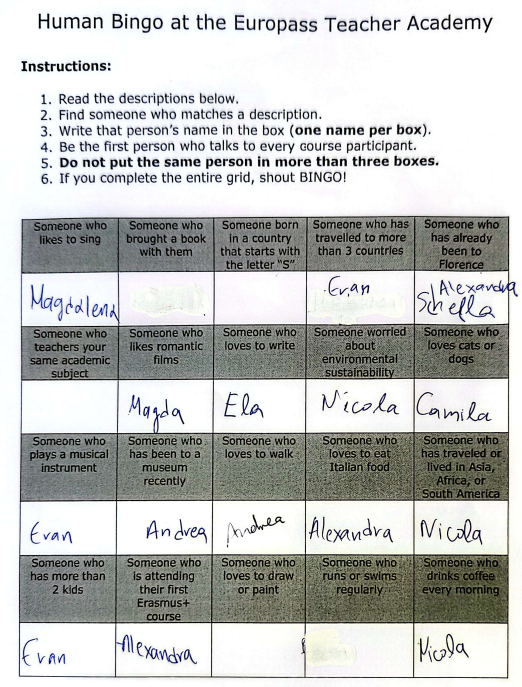 Human Bingo at the Europass Teacher Academy
Instructions:
1. Read the descriptions below.
2. Find someone who matches a description.
3. Write that person's name in the box (one name per box).
4. Be the first person who talks to every course participant.
5. Do not put the same person in more than three boxes.
6. If you complete the entire grid, shout BINGO!
Someone who likes to sing
Someone who brought a book with them
Someone born in a country that starts with the letter "S"
Someone who has travelled to more than 3 countries
Someone who has already been to Florence
Magdalena
Evan
Alexandra
Schella
Someone who teachers your same academic subject
Someone who likes romantic films
Someone who loves to write
Someone worried about environmental sustainability
Someone who loves cats or dogs
Magda
Ela
Nicola
Camila
Someone who plays a musical instrument
Someone who has been to a museum recently
Someone who loves to walk
Someone who loves to eat Italian food
Someone who has traveled or lived in Asia, Africa, or South America
Evan
Andrea
Andrea
Alexandra
Nicola
Someone who has more than 2 kids
Someone who is attending their first Erasmus+ course
Someone who loves to draw or paint
Someone who runs or swims regularly
Someone who drinks coffee every morning
Evan
Alexandra
Nicola